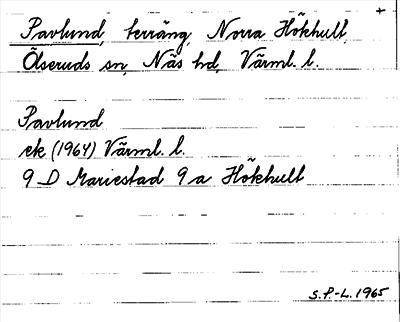 +
Pavlund, terräng, Norra Hökhult,
Ölseruds sn, Näs hd, Värml. l.
Pavlund
ek (1964) Värml. l.
9 D Mariestad 9 a Hökhult
S.P.-L. 1965